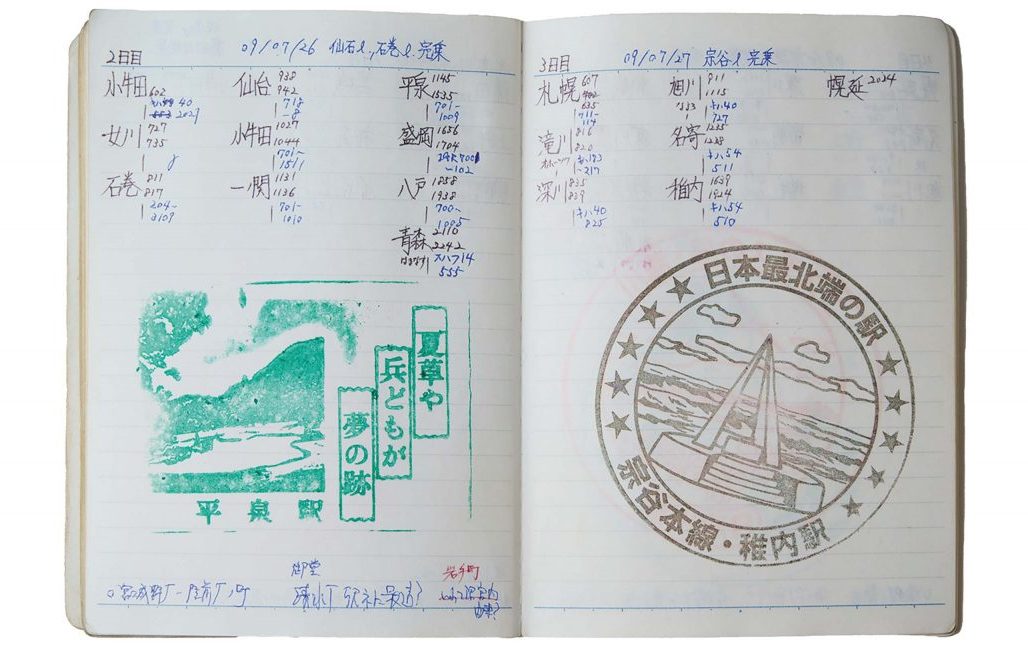 2日目
09/07/26 仙石l,石巻l.完乗
小牛田 602
キハ48 40
2021
女川 727
735
8
石巻 811
817
204-
3109
仙台 938
942
718
-8
小牛田 1027
1044
701-
1511
一関 1131
1136
701-
1010
平泉 1145
1535
701-
1009
盛岡 1656
1704
IGR7001
-102
八戸 1858
1938
700-
1995
青森 2110
2242
はまなす スハフ14
555
夏草や
兵どもが
夢の跡
平泉駅
御堂
岩手町
3日目
09/07/27 宗谷l完乗
札幌 607
635
711-
114
滝川 816
820
オホーツク キハ183
-217
深川 835
839
キハ40
825
旭川 911
1115
キハ40
727
名寄 1235
1238
キハ54
511
稚内 1639
1924
キハ54
510
幌延 2024
日本最北端の駅
宗谷本線・稚内駅